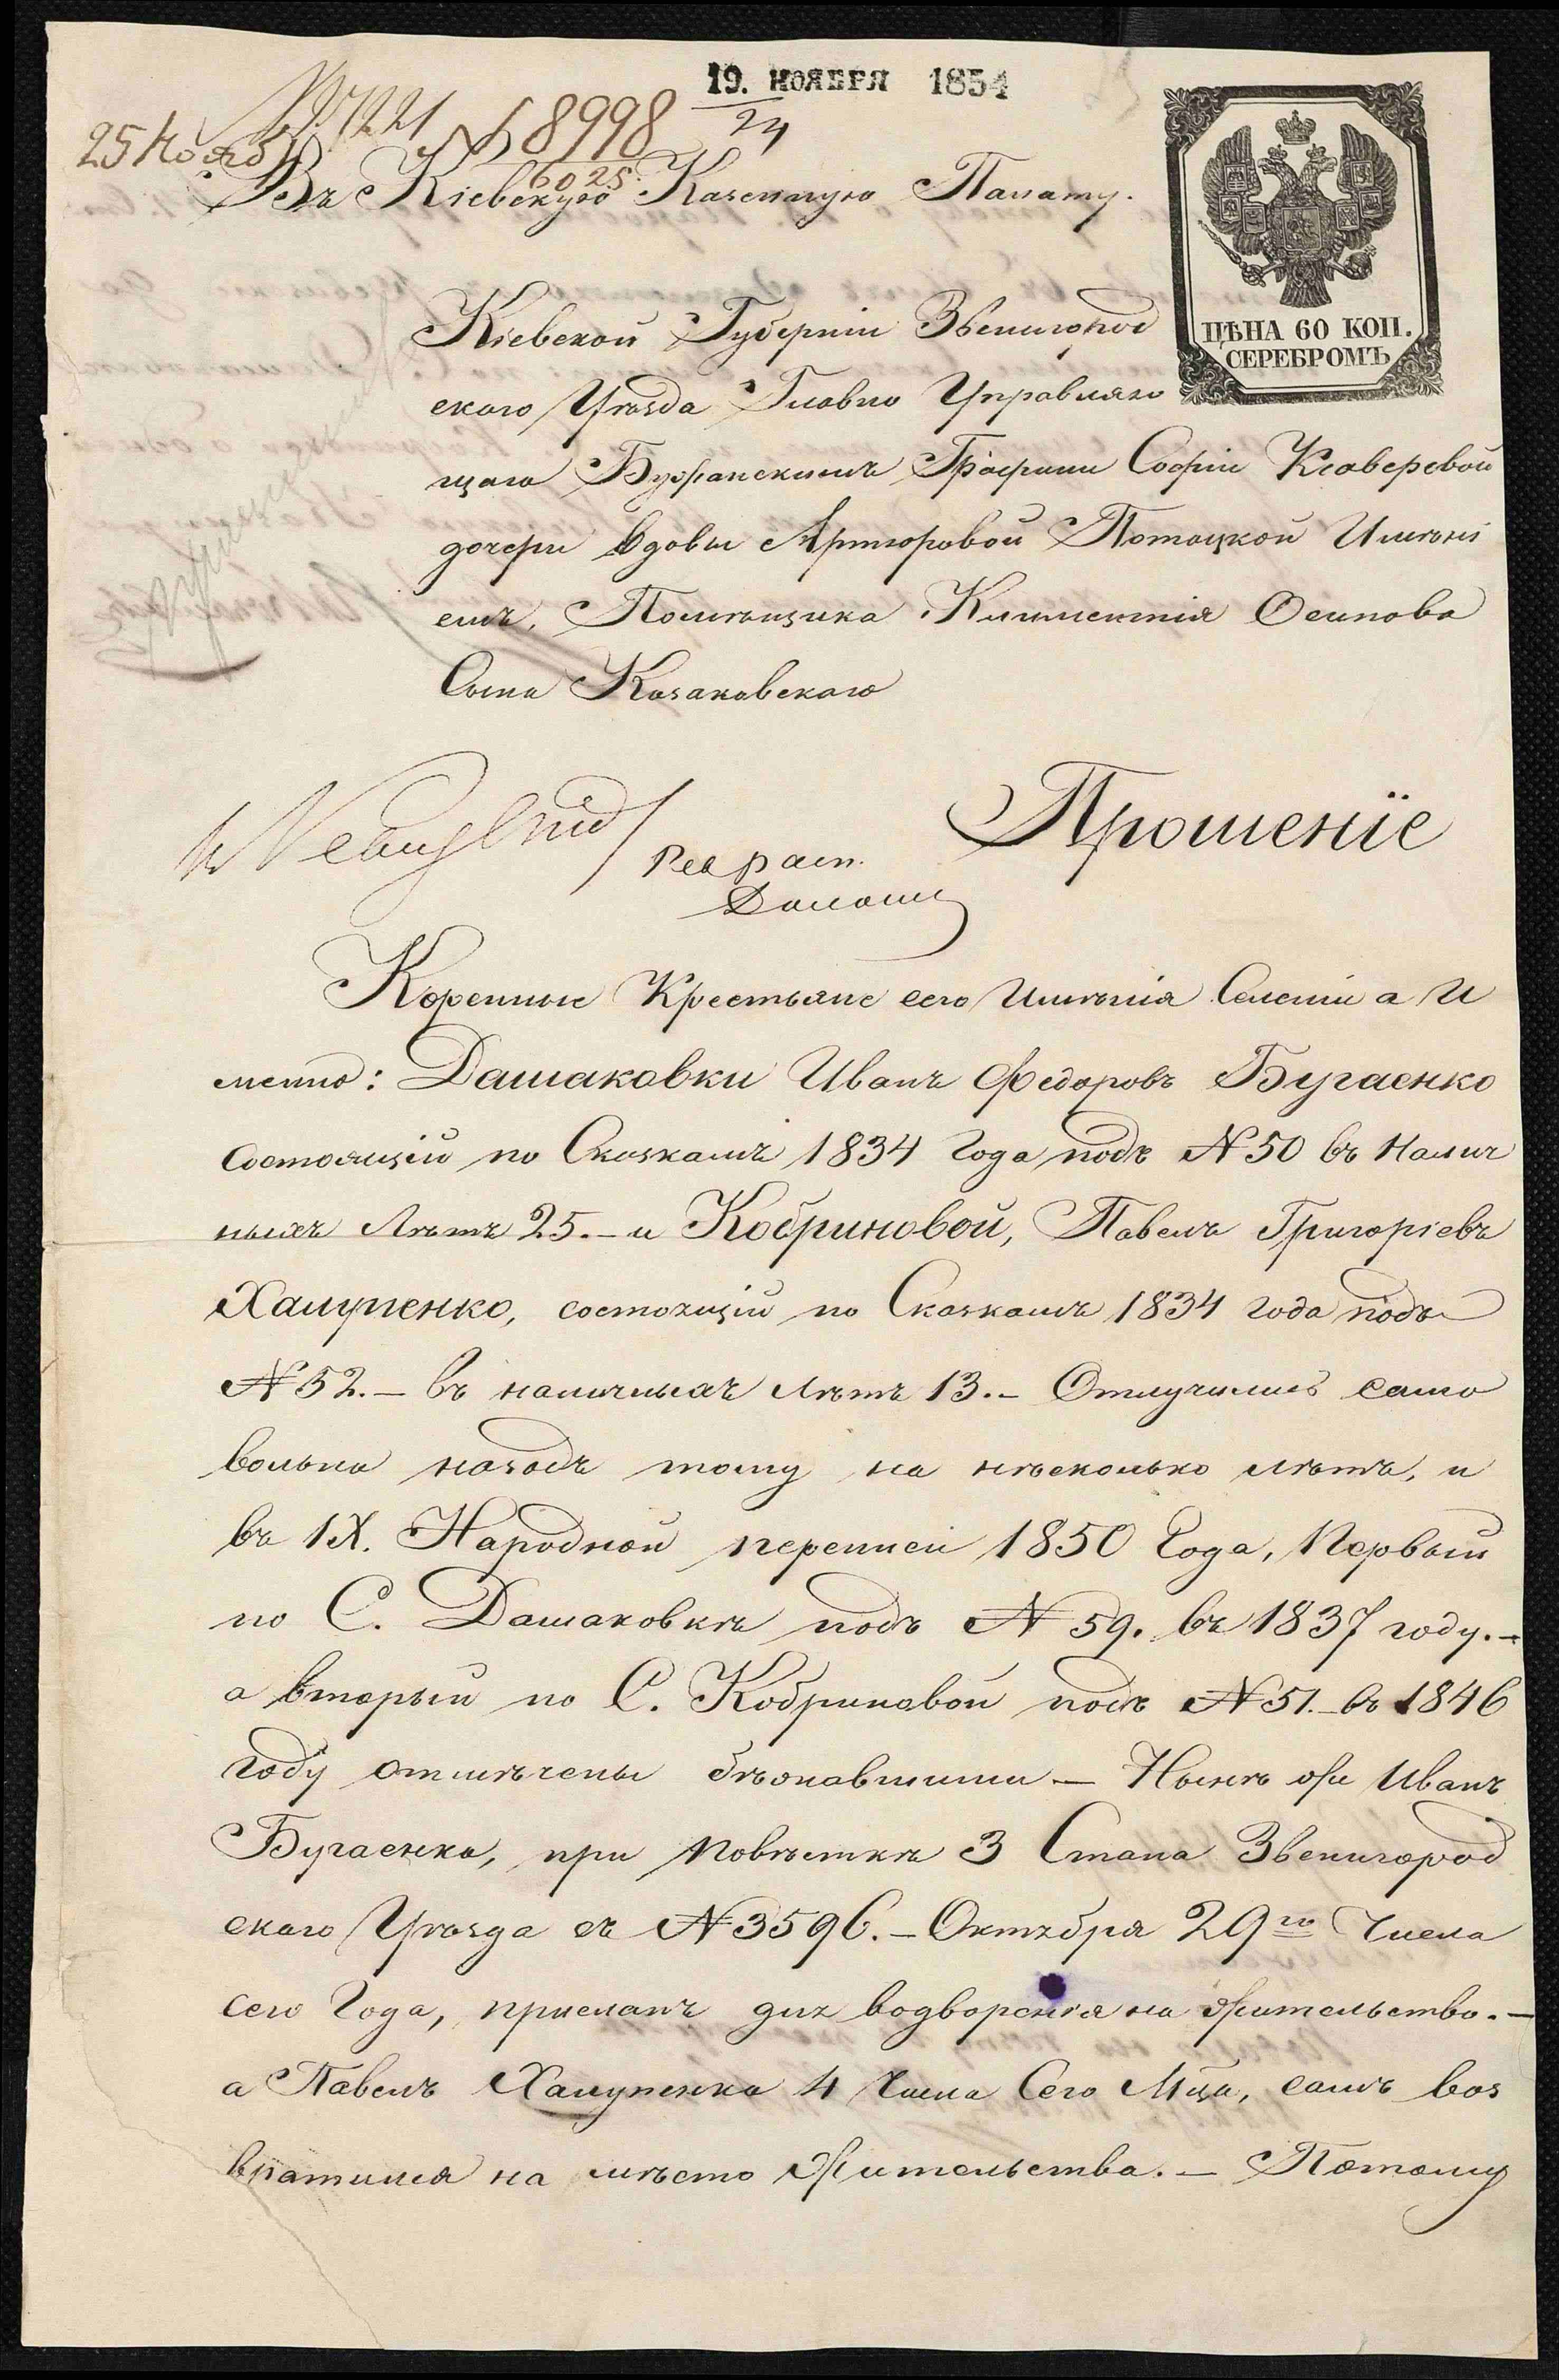 19. НОЯБРЯ 1854
24
25 Нояб
№ 7221
№ 8998
6025
Въ Кіевскую Казенную Палату.
ЦѢНА 60 КОП.
СЕРЕБРОМЪ
Кіевской Губерніи Звенигород
скаго Уѣзда Главно Управляю
щаго Бужанскимъ Графини Софіи Ксаверевой
дочери вдовы Артюровой Потоцкой Имѣні
емъ, Помѣщика Климентія Осипова
Сына Казаковскаго
Прошеніе
Коренные Крестьяне сего Имѣнія Селеній а И
менно: Дашаковки Иванъ Федоровъ Бугаенко
состоящій по Сказкамъ 1834 Года подъ № 50 въ Налич
ныхъ Лѣтъ 25. – и Кобриновой, Павелъ Григоріевъ
Халупенко, состоящій по Сказкамъ 1834 года подъ
№ 52. – въ наличныхъ Лѣтъ 13. – Отлучились само
вольно назадъ тому на нѣсколько лѣтъ, и
въ IX. Народной переписи 1850 Года, Первый
по С. Дашаковкѣ подъ № 59. въ 1837 году. –
а вторый по С. Кобриновой подъ № 51. – въ 1846
году отмѣчены бѣжавшими – Нынѣ же Иванъ
Бугаенко, при Повѣсткѣ 3 Стана Звенигород
скаго Уѣзда съ № 3596. – Октября 29го Числа
сего Года, присланъ для водворенія на жительство. –
а Павелъ Халупенко 4 Числа Сего Мца, самъ воз
вратился на мѣсто Жительства. – Потому